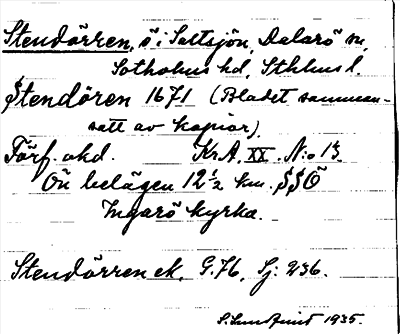 Stendörren, ö i Saltsjön, Dalarö sn,
Sotholms hd, Sthlms l.
Stendören 1671 (Bladet samman-
satt av kopior).
Förf. okd. KrA, XX. N:o 13
Ön belägen 12 1/2 km. SSÖ
Ingarö kyrka.
Stendörren ek. G.76, Sj: 236.
S. Lundqvist 1935.